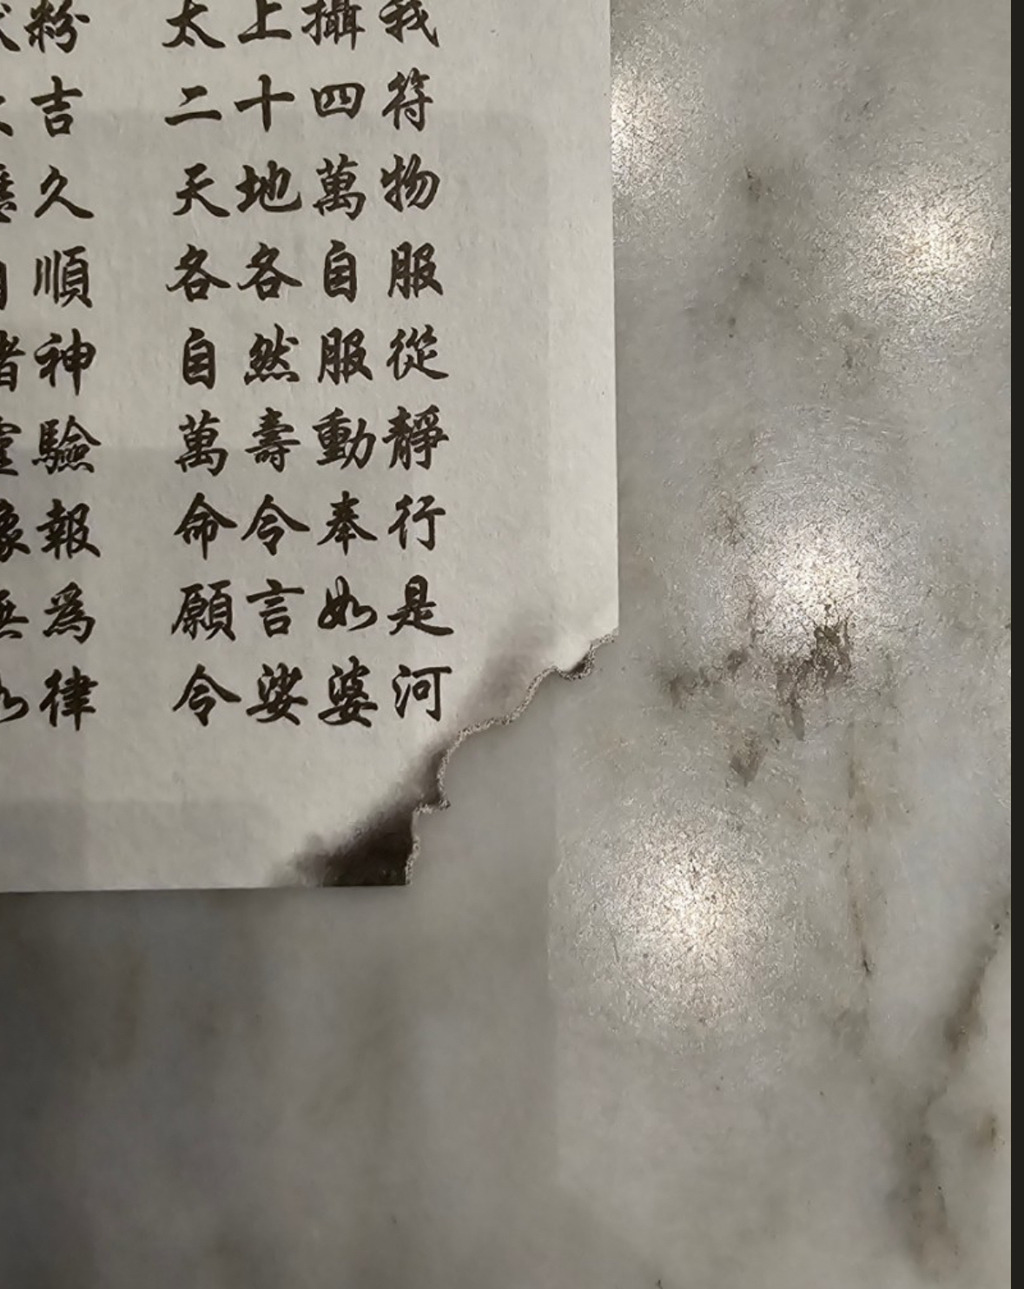 我符物服從靜行是河
攝四萬自服動奉如婆
上十地各然壽令言娑
太二天各自萬命願令
粉吉久順神驗報為律